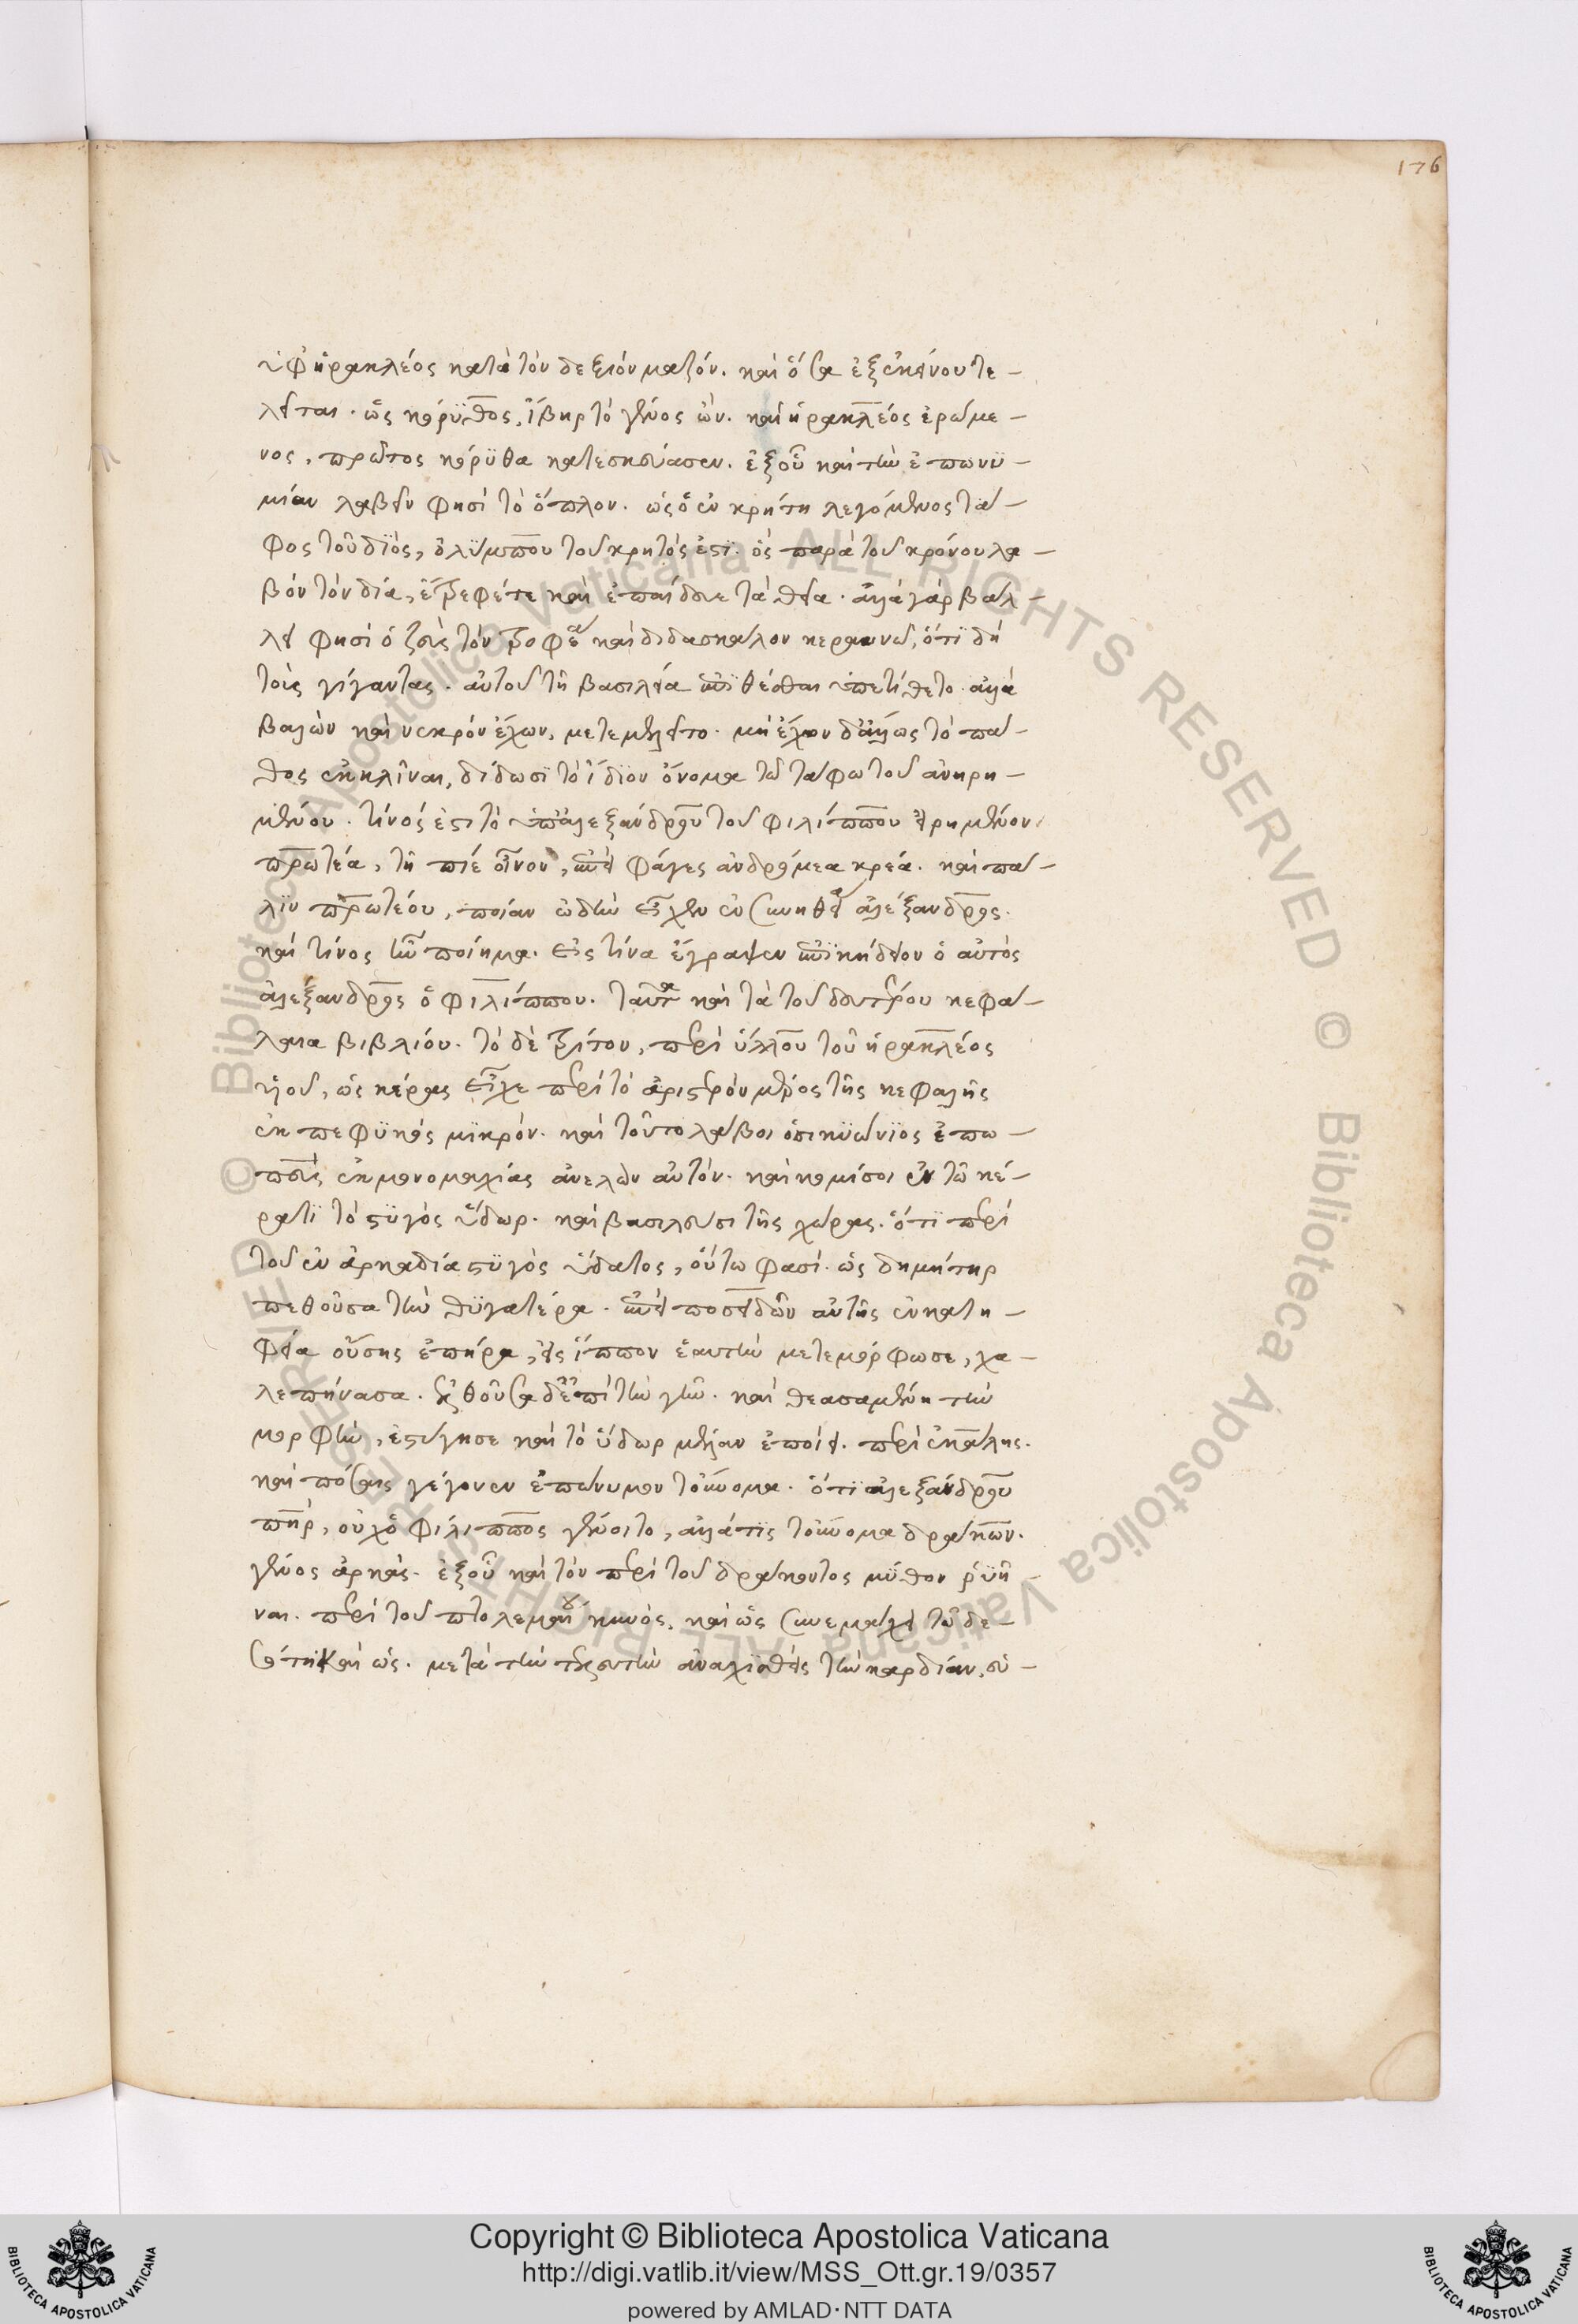 176
ὑφ ἡρακλέος κατὰ τὸν δεξιὸν μαζόν. καὶ ὅσα ἐξ ἐκείνου τε-
λεῖται. ὡς κόρϋθος, ἴβηρ τὸ γένος ὤν. καὶ ἡρακλέος ἐρώμε-
νος, πρῶτος κόρϋθα κατεσκεύασεν. ἐξ οὗ καὶ τὴν ἐπωνϋ-
μίαν λαβεῖν φησὶ τὸ ὅπλον. ὡς ὁ ἐν κρήτη λεγόμενος τά-
φος τοῦ διὸς, ὀλύμπου τοῦ κρητός ἐστϊ. ὃς παρὰ τοῦ κρόνου λα-
βὸν τὸν δία, ἔτρεφέ τε καὶ ἐπαίδευε τὰ θεῖα. ἀλλὰ γὰρ βάλ-
λει φησὶ ὁ ζεὺς τὸν τροφέα καὶ διδάσκαλον κεραυνῶ, ὅτϊ δὴ
τοὺς γίγαντας. αὐτοῦ τῆ βασιλεία ἐπιθέσθαι ὑπετίθετο. ἀλλὰ
βαλὼν καὶ νεκρὸν ἔχων, μετεμέλειτο. μὴ ἔχων δ' ἄλλως τὸ πά-
θος ἐκκλῖναι, δίδωσϊ τὸ ἴδϊον ὄνομα τῶ τάφω τοῦ ἀνηρη-
μένου. τίνός ἐστι τὸ ὑπ' ἀλεξάνδρου τοῦ φιλίππου εἰρημένον
πρωτέα, τῆ πίε οἶνον, ἐπεὶ φάγες ἀνδρόμεα κρέα. καὶ πά-
λϊν πρωτέου, ποίαν ὠδὴν εἶχεν ἐν συνηθεία ἀλέξανδρος.
καὶ τίνος ἦν ποίημα. εἰς τίνα ἔγραψεν ἐπϊκήδειον ὁ αὐτὸς
ἀλέξανδρος ὁ φιλίππου. ταῦτα καὶ τὰ τοῦ δευτέρου κεφά-
λαια βιβλίου. τὸ δὲ τρίτον, περὶ ὕλλου τοῦ ἡρακλέος
υἱοῦ, ὡς κέρας εἶχε περὶ τὸ ἀριστερὸν μέρος τῆς κεφαλῆς
ἐκπεφϋκὸς μϊκρόν. καὶ τοῦτο λάβοι ὁ σικϋώνϊος ἐπω-
πεὺς ἐκ μονομαχίας ἀνελὼν αὐτόν. καὶ κομίσοι ἐν τῶ κέ-
ρατϊ τὸ στϋγὸς ὕδωρ. καὶ βασιλεύσι τῆς χώρας. ὅτϊ περὶ
τοῦ ἐν ἀρκαδία στϋγὸς ὕδατος, οὕτω φασί. ὡς δημήτηρ
πεθοῦσα τὴν θϋγατέρα. ἐπεὶ ποσειδῶν αὐτῆς ἐν κατη-
φεία οὔσης ἐπήρα, εἰς ἵππον ἑαυτὴν μετεμόρφωσε, χα-
λεπήνασα. ἐλθοῦσα δὲ ἐπὶ τὴν γῆν. καὶ θεασαμένη τὴν
μορφὴν, ἐστύγησε καὶ τὸ ὕδωρ μέλαν ἐποίει. περὶ ἑκάλης.
καὶ πόσαις γέγονεν ἐπώνυμον τοὔνομα. ὅτϊ ἀλεξάνδρου
πατὴρ, οὐχ ὁ φίλιππος γένοιτο, ἀλλά τϊς τοὔνομα δράκων.
γένος ἀρκάς. ἐξ οὗ καὶ τὸν περὶ τοῦ δράκοντος μῦθον ῥϋῆ-
ναι. περὶ τοῦ πτολεμαίου κυνὸς, καὶ ὡς συνεμάχει τῶ δε-
σπότη καὶ ὡς. μετὰ τὴν τελευτὴν ἀνασχϊσθεὶς τὴν καρδίαν, εὑ-
Copyright © Biblioteca Apostolica Vaticana
http://digi.vatlib.it/view/MSS_Ott.gr.19/0357
powered by AMLAD·NTT DATA